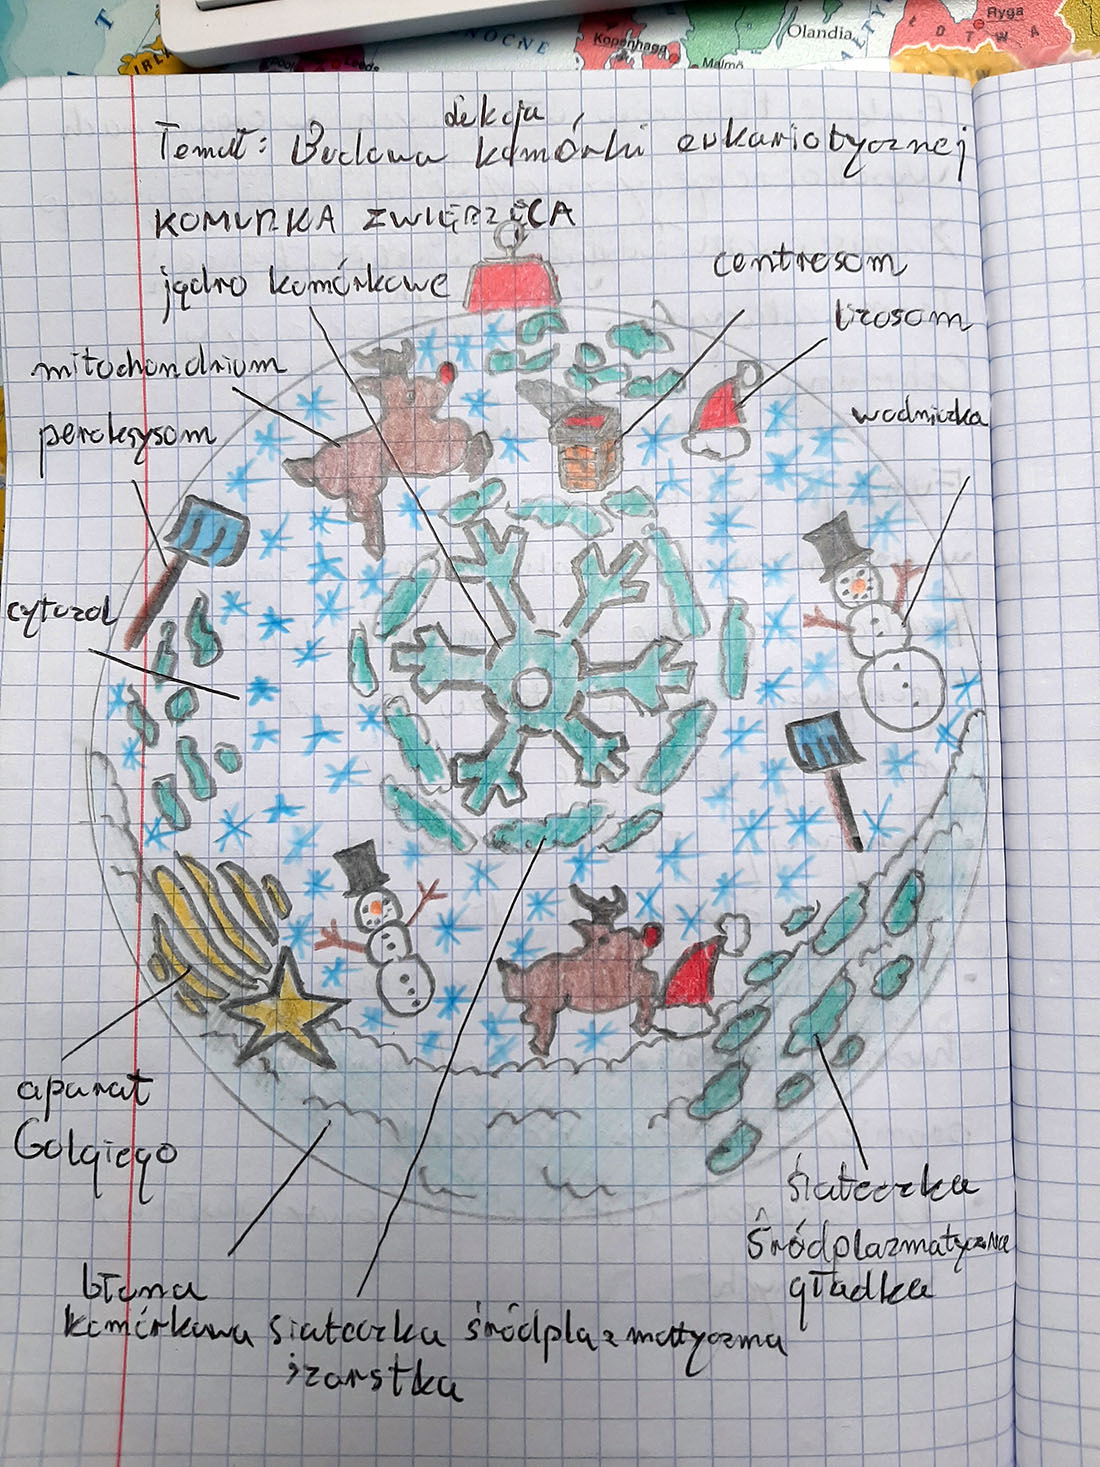 NOCNE
Kopenhaga
Malmö
Olandia
Ryga
Leeds
lekcja
Temat: Budowa komórki eukariotycznej
KOMURKA ZWIĘRZĘCA
jądro komórkowe
centrosom
lizosom
mitochondrium
peroksysom
wodniczka
cytozol
aparat
Golgiego
siateczka
śródplazmatyczna
gładka
błona
komórkowa
siateczka śródplazmatyczma
szorstka